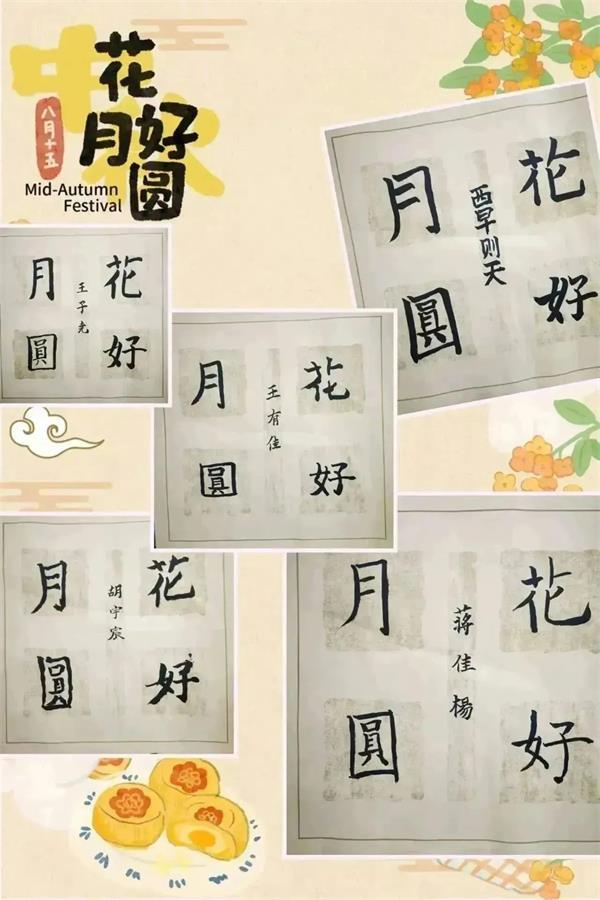 中
花好
月圆
八月十五
Mid-Autumn
Festival
花好
西早则天
月圓
花好
王子
月圓
花好
王有佳
月圓
花好
胡宇宸
月圓
花好
蒋佳楊
月圓